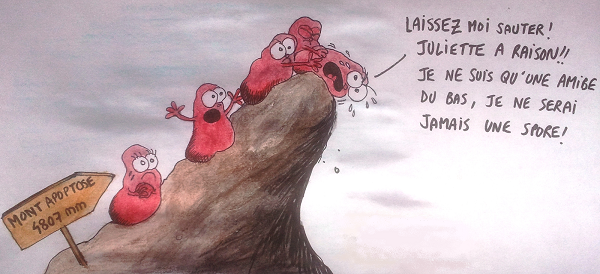 LAISSEZ MOI SAUTER!
JULIETTE A RAISON!!
JE NE SUIS QU'UNE AMIBE
DU BAS, JE NE SERAI
JAMAIS UNE SPORE!
MONT APOPTOSE
4807 mm